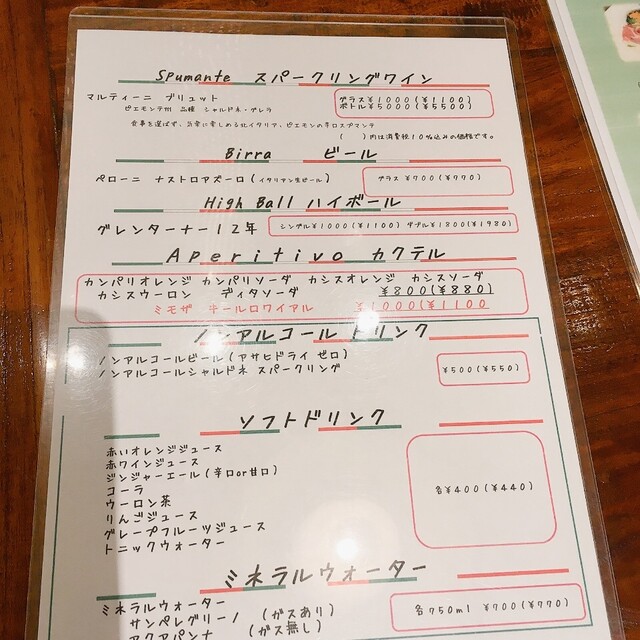 Spumante スパークリングワイン
マルティーニ ブリュット
グラス¥1000(¥1100)
ピエモンテ州 品種 シャルドネ・グレラ
ボトル¥5000(¥5500)
食事を選ばず、気楽に楽しめる北イタリア、ピエモンの辛口スプマンテ
( )内は消費税10%込みの価格です。
Birra ビール
ペローニ ナストロアズーロ(イタリアン生ビール)
グラス ¥700(¥770)
High Ball ハイボール
グレンターナー12年
シングル¥1000(¥1100) ダブル¥1800(¥1980)
Aperitivo カクテル
カンパリオレンジ カンパリソーダ カシスオレンジ カシスソーダ
カシスウーロン ディタソーダ ¥800(¥880)
ミモザ キールロワイアル ¥1000(¥1100
ノンアルコールドリンク
ノンアルコールビール(アサヒドライ ゼロ)
ノンアルコールシャルドネ スパークリング
¥500(¥550)
ソフトドリンク
赤いオレンジジュース
赤ワインジュース
ジンジャーエール(辛口or甘口)
コーラ
ウーロン茶
りんごジュース
グレープフルーツジュース
トニックウォーター
各¥400(¥440)
ミネラルウォーター
ミネラルウォーター
サンペレグリーノ (ガスあり)
アクアパンナ (ガス無し)
各750ml ¥700(¥770)